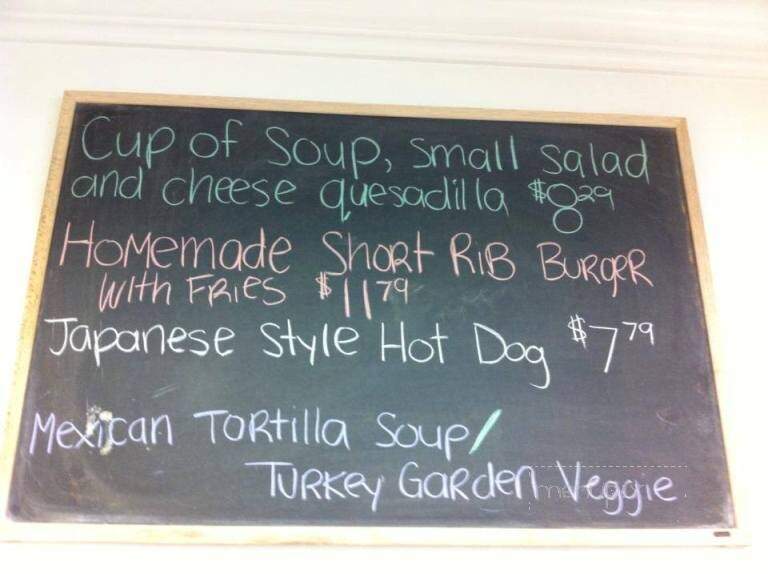 Cup of Soup, small salad
and cheese quesadilla $8.29
Homemade Short Rib Burger
With Fries $11.79
Japanese Style Hot Dog $7.79
Mexican Tortilla Soup/
Turkey Garden Veggie